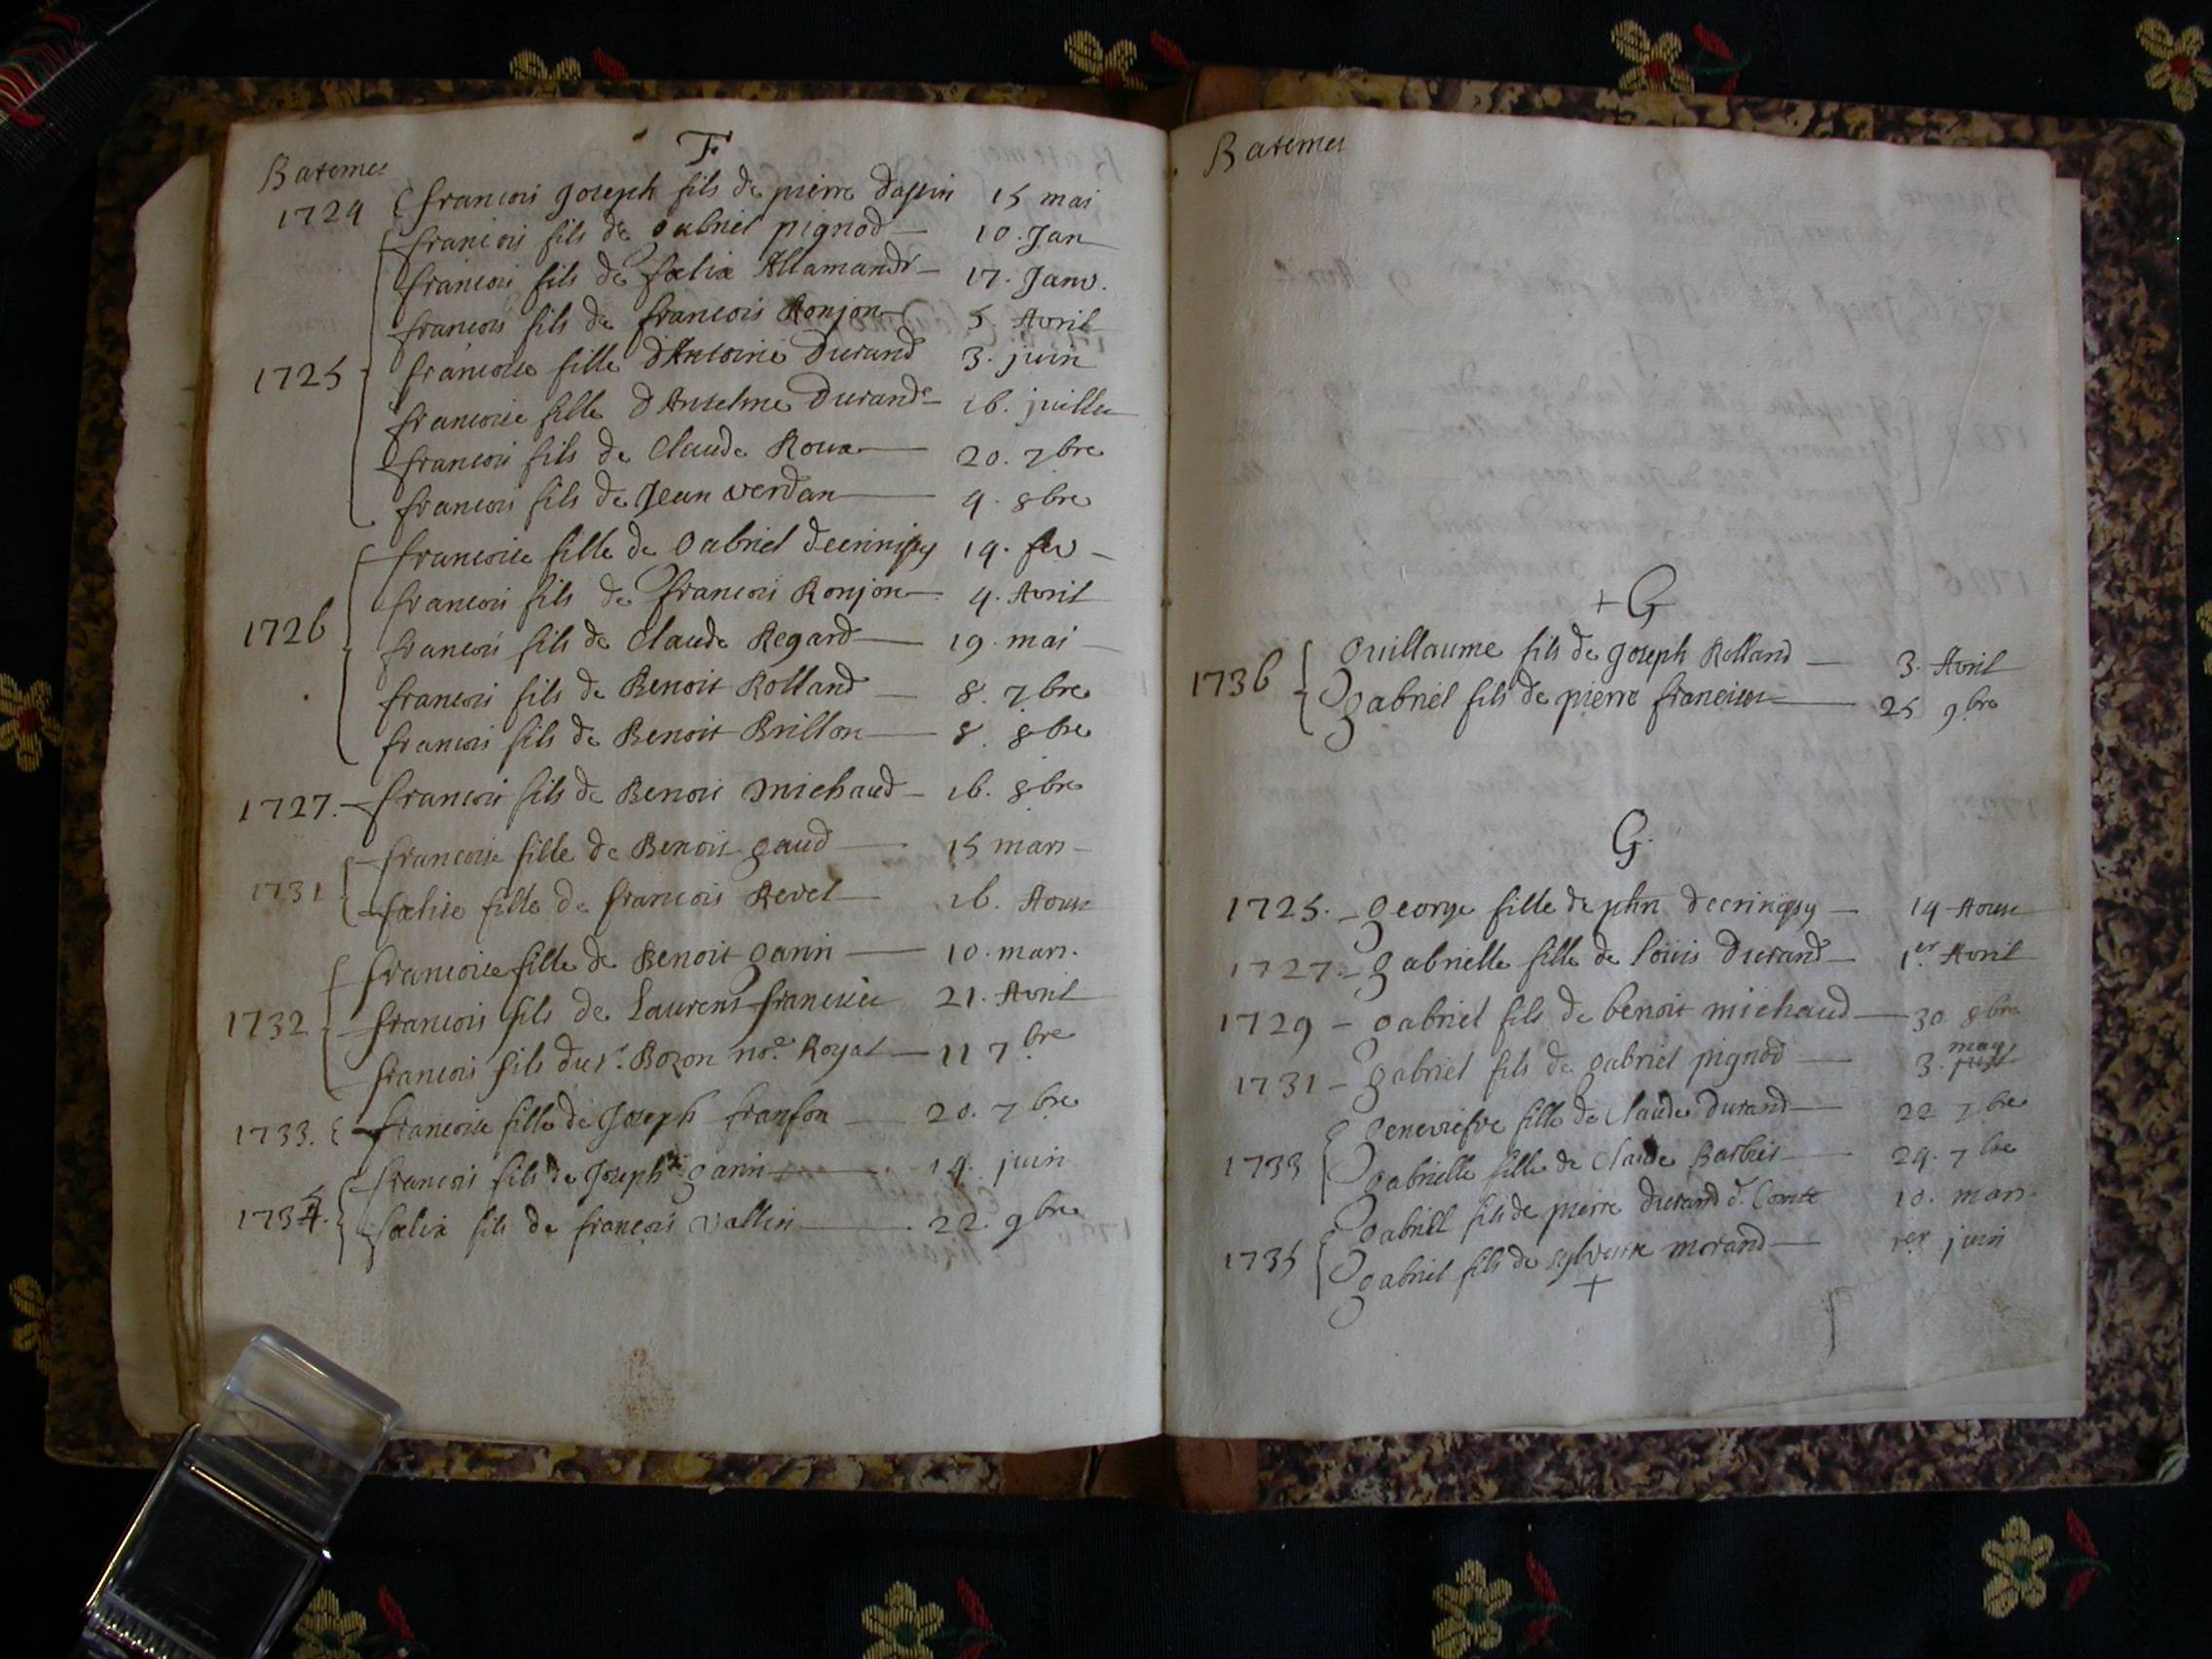 Batemes
F.
1724 francois joseph fils de pierre dassin 15 mai
francois fils de gabriel pignod 10. Jan
francois fils de fælix Allamand 17. Janv.
francois fils de francois Ronjon 5. Avril
1725 francoise fille d'Antoine Durand 3. juin
francoise fille d'Anselme Durand 16. juillet
francois fils de Claude Roux 20. 7bre
francois fils de Jean verdan 4. 8bre
francoise fille de gabriel decrinijsy 14. fev
francois fils de francois Ronjon 4. Avril
1726 francois fils de Claude Regard 19. mai
francois fils de Benoit Rolland 8. 7bre
francois fils de Benoit Brillon 8. 8bre
1727. francois fils de Benoit michaud 16. 8bre
francoise fille de Benoit gaud 15 mars
1731 fælise fille de francois Revel 16. Aoust
francoise fille de Benoit garin 10. mars.
1732 francois fils de Laurent francois 21. Avril
francois fils du sr. Bozon nore. Royal 11 7bre
1733. francoise fille de Joseph franson 20. 7bre
francois fils de Joseph garin 14. juin
1735. fælix fils de francois vallin 22. 9bre
Batemes
+ G
1736 guillaume fils de joseph Rolland 3. Avril
gabriel fils de pierre francois 25 9bre
G.
1725. george fille de phn decrinijsy 14 Aoust
1727. gabrielle fille de loüis Durand 1er. Avril
1729 gabriel fils de benoit michaud 30 8bre
may
1731 gabriel fils de gabriel pignod 3.
geneviefve fille de Claude Durand 22 7bre
1733 gabrielle fille de Claude Barbier 29. 7bre
gabriel fils de pierre durand d. Comte 10. mars.
1735 gabriel fils de sylvestre morand 1er juin
+